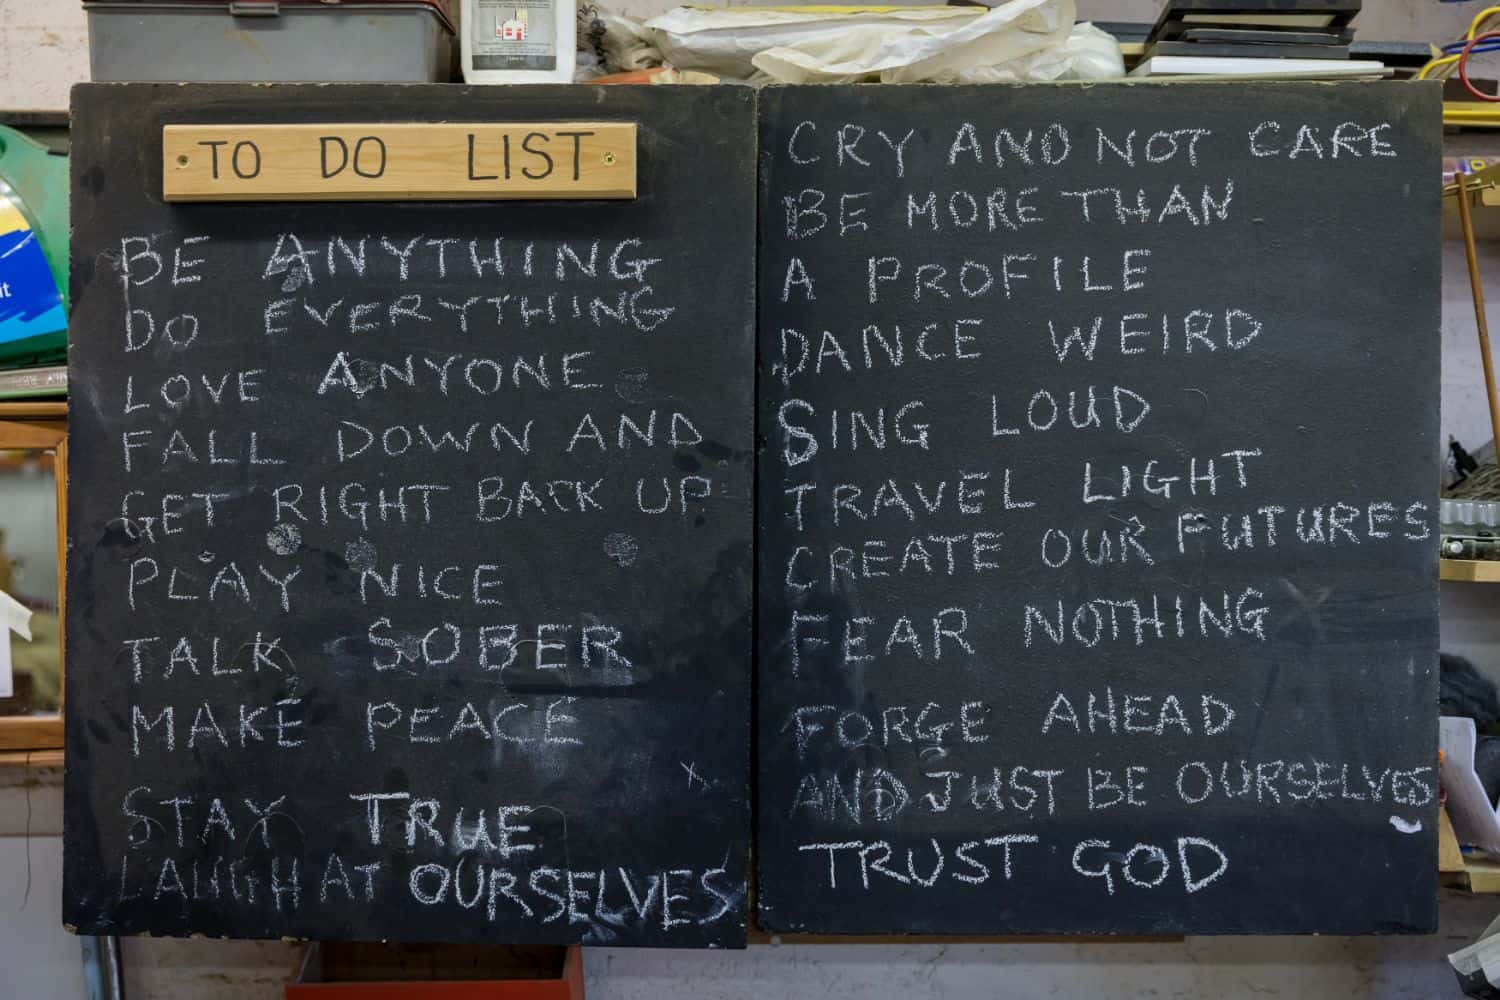 TO DO LIST
BE ANYTHING
DO EVERYTHING
LOVE ANYONE
FALL DOWN AND
GET RIGHT BACK UP
PLAY NICE
TALK SOBER
MAKE PEACE
STAY TRUE
LAUGH AT OURSELVES
CRY AND NOT CARE
BE MORE THAN
A PROFILE
DANCE WEIRD
SING LOUD
TRAVEL LIGHT
CREATE OUR FUTURES
FEAR NOTHING
FORGE AHEAD
AND JUST BE OURSELVES
TRUST GOD